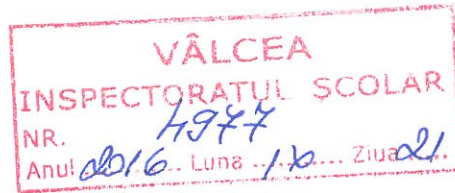 VÂLCEA
INSPECTORATUL ȘCOLAR
NR. 4977
Anul 2016 Luna Ziua 21